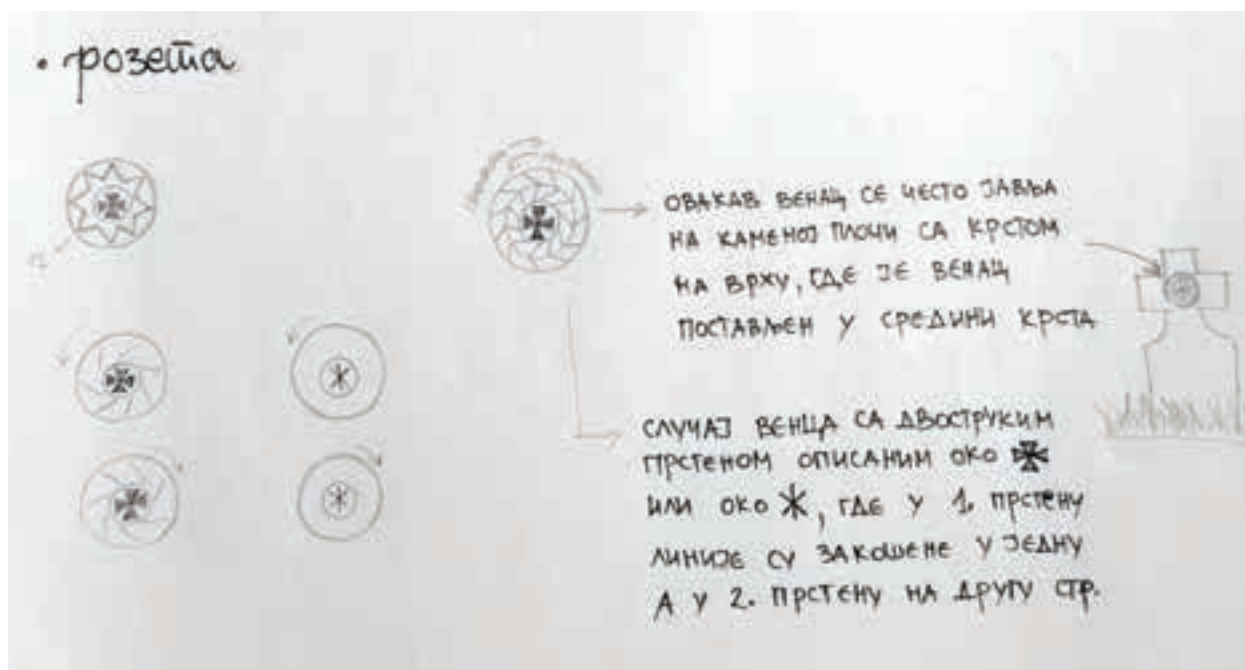 • розета
ОВАКАВ ВЕНАЦ СЕ ЧЕСТО ЈАВЉА
НА КАМЕНОЈ ПЛОЧИ СА КРСТОМ
НА ВРХУ, ГДЕ ЈЕ ВЕНАЦ
ПОСТАВЉЕН У СРЕДИНИ КРСТА
СЛУЧАЈ ВЕНЦА СА ДВОСТРУКИМ
ПРСТЕНОМ ОПИСАНИМ ОКО ✠
ИЛИ ОКО Ж, ГДЕ У 1. ПРСТЕНУ
ЛИНИЈЕ СУ ЗАКОШЕНЕ У ЈЕДНУ
А У 2. ПРСТЕНУ НА ДРУГУ СТР.